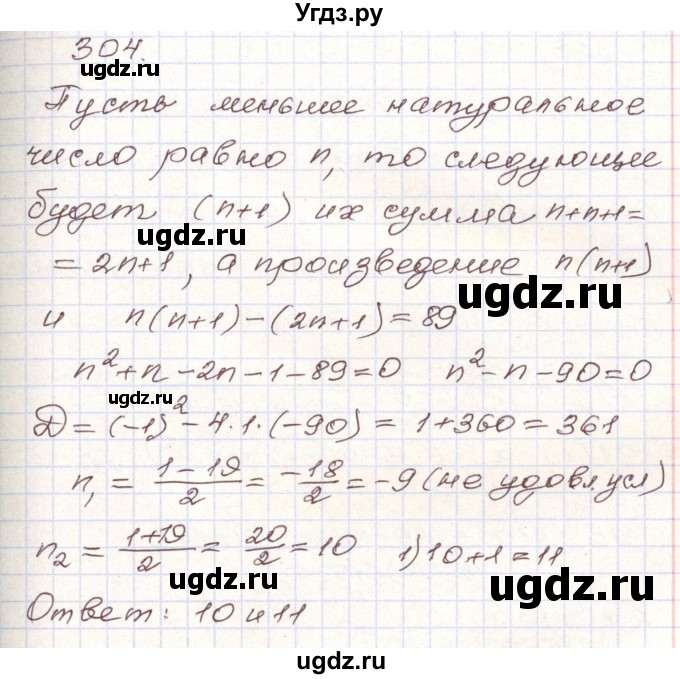 Угдз.ру
304.
ugdz.ru
Пусть меньшее натуральное
число равно n, то следующее
будет (n+1) их сумма n+n+1=
ugdz.ru
= 2n+1, а произведение n(n+1)
ugdz.ru
и n(n+1)-(2n+1)=89
n²+n-2n-1-89=0 n²-n-90=0
ugdz.ru
D=(-1)²-4·1·(-90)=1+360=361
n₁ = (1-19)/2 = -18/2 = -9 (не удовл. усл)
ugdz.ru
n₂ = (1+19)/2 = 20/2 = 10 1) 10+1=11
ugdz.ru
ugdz.ru
Ответ: 10 и 11
ugdz.ru